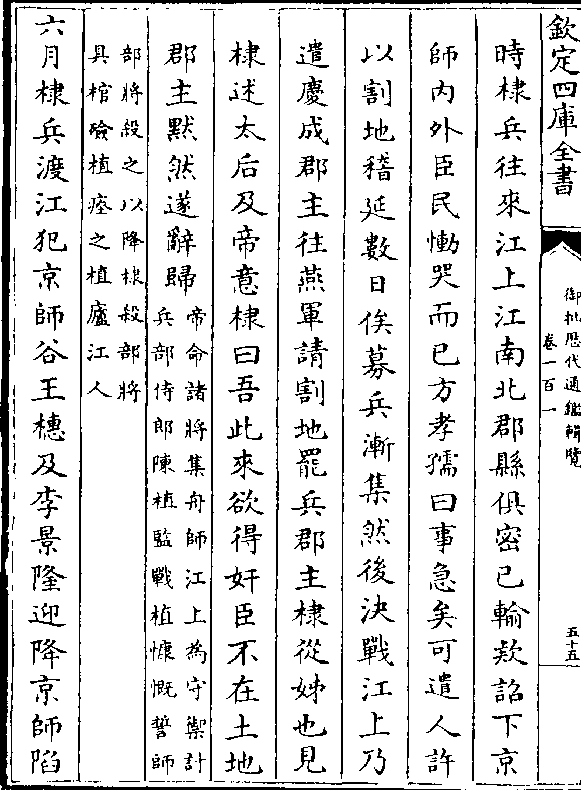 欽定四庫全書
御批歷代通鑑輯覽
卷一百一
五十五
時棣兵往來江上江南北郡縣俱密已輸款詔下京
師内外臣民慟哭而已方孝孺曰事急矣可遣人許
以割地稽延數日俟募兵漸集然後決戰江上乃
遣慶成郡主往燕軍請割地罷兵郡主棣從姊也見
棣述太后及帝意棣曰吾此來欲得奸臣不在土地
郡主黙然遂辭歸
帝命諸將集舟師江上為守禦計
兵部侍郎陳植監戰植慷慨誓師
部將殺之以降棣殺部將
具棺殮植瘞之植廬江人
六月棣兵渡江犯京師谷王橞及李景隆迎降京師陷